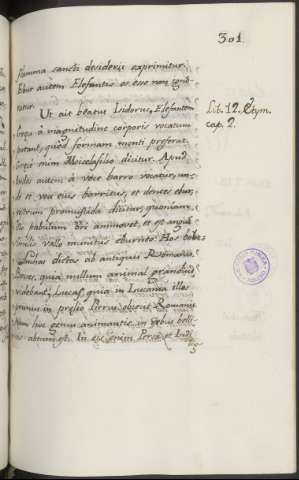 301
flamma sancti desiderii exprimitur.
Ebur autem Elefantis os esse non
Ut ait beatus Isidorus, Elefantem
a magnitudine corporis vocatum
putant, quod formam montis preferat.
dicitur. Apud
Indos autem à voce barro vocatur, un-
de et vox eius barritus, et dentes ebur,
rostrum promuscida dicitur, quoniam
illo pabulum ori admovet, et est angui
similis vallo munitus eburneo. Hos boves
Lucas dictos ab antiquis Romanis.
Boves, quia nullum animal grandius
videbant; Lucas, quia in Lucania illos
primus in prelio Pirrus obiecit Romanis.
Nam hoc genus animantis in rebus belli-
cis aptum est. In eis enim Persę et Indi
Lib. 12. Etym.
cap. 2.